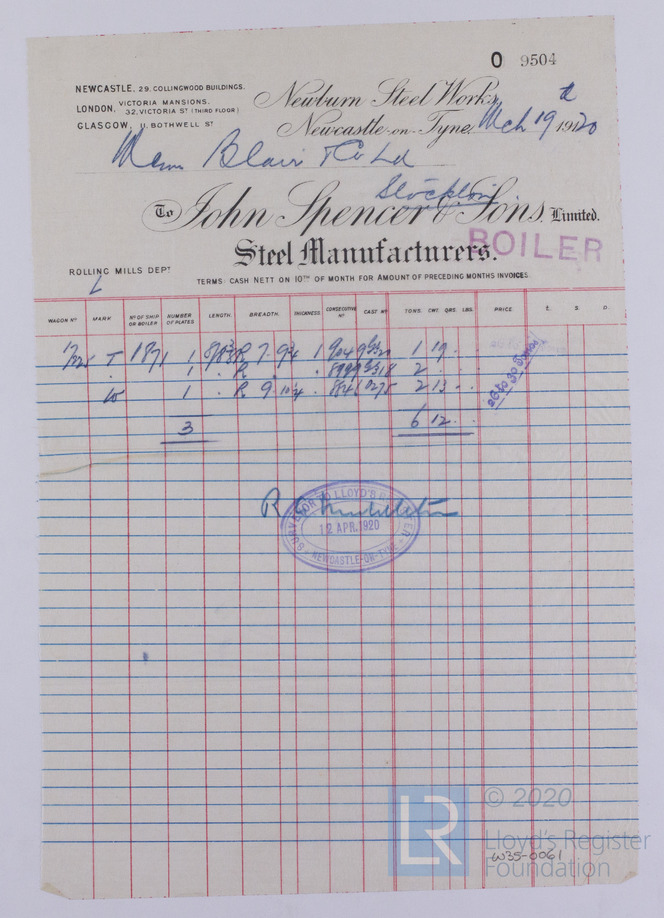 O 9504
NEWCASTLE, 29, COLLINGWOOD BUILDINGS.
LONDON, VICTORIA MANSIONS, 32, VICTORIA ST (THIRD FLOOR)
GLASGOW, 11, BOTHWELL ST
Newburn Steel Works,
Newcastle-on-Tyne, Mch 19th 1920
Blair & Co Ld
Stockton
To John Spencer & Sons, Limited.
Steel Manufacturers.
BOILER
ROLLING MILLS DEPT
L
TERMS: CASH NETT ON 10TH OF MONTH FOR AMOUNT OF PRECEDING MONTHS INVOICES.
WAGON No MARK No OF SHIP OR BOILER NUMBER OF PLATES LENGTH. BREADTH. THICKNESS. CONSECUTIVE No CAST No TONS. CWT. QRS. LBS. PRICE. £. S. D.
T 1871 1 R 7 . 9¾ 1 1 19 . .
. . 1 . R . . 2 . . .
W 1 . R 9 . 10¼ . 2 13 . .
3 6 12 . .
R
SURVEYOR TO LLOYD'S REGISTER
12 APR. 1920
NEWCASTLE-ON-TYNE
LR
© 2020
Lloyd's Register
Foundation
W35-0061